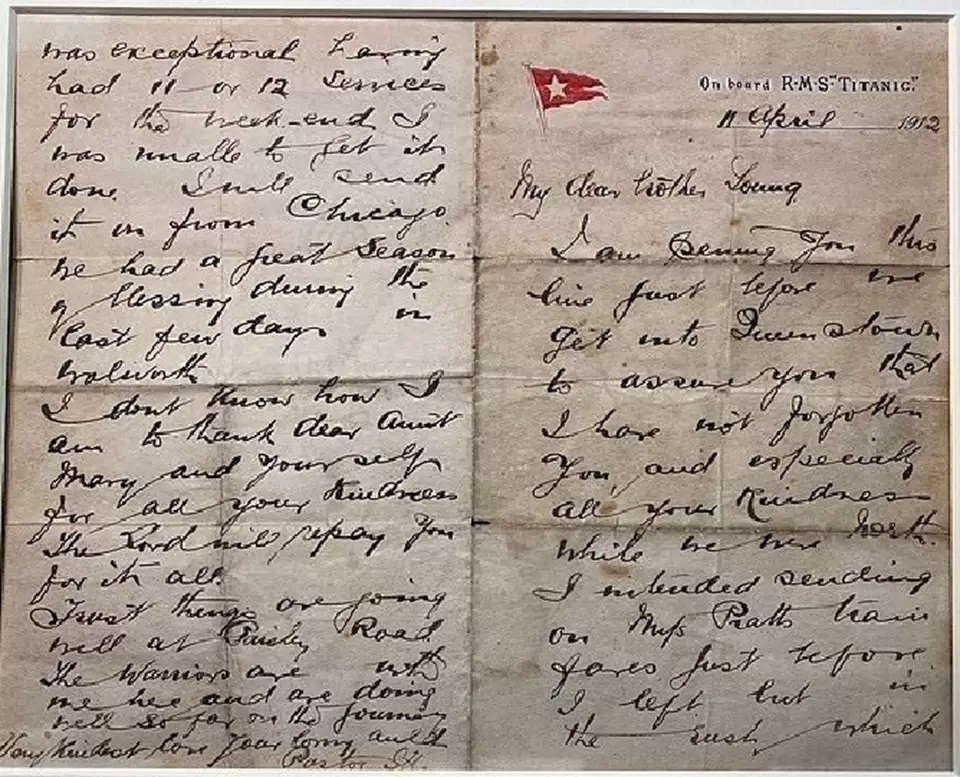 On board R·M·S· "TITANIC."
11 April 1912
My dear brother Young
I am penning you this
line just before we
get into Queenstown
to assure you that
I have not forgotten
you, and especially
all your kindness
while we were North.
I intended sending
on Miss Pratts train
fares just before
I left but in
the rush which
was exceptional having
had 11 or 12 services
for the week-end I
was unable to get it
done. I will send
it on from Chicago.
We had a great season
of blessing during the
last few days in
Walworth
I dont know how I
am to thank dear Aunt
Mary and yourself
for all your kindness
The Lord will repay you
for it all.
Trust things are going
well at Paisley Road.
The Warriors are with
me here and are doing
well so far on the Journey
Very kindest love Your loving auld
Pastor J.H.